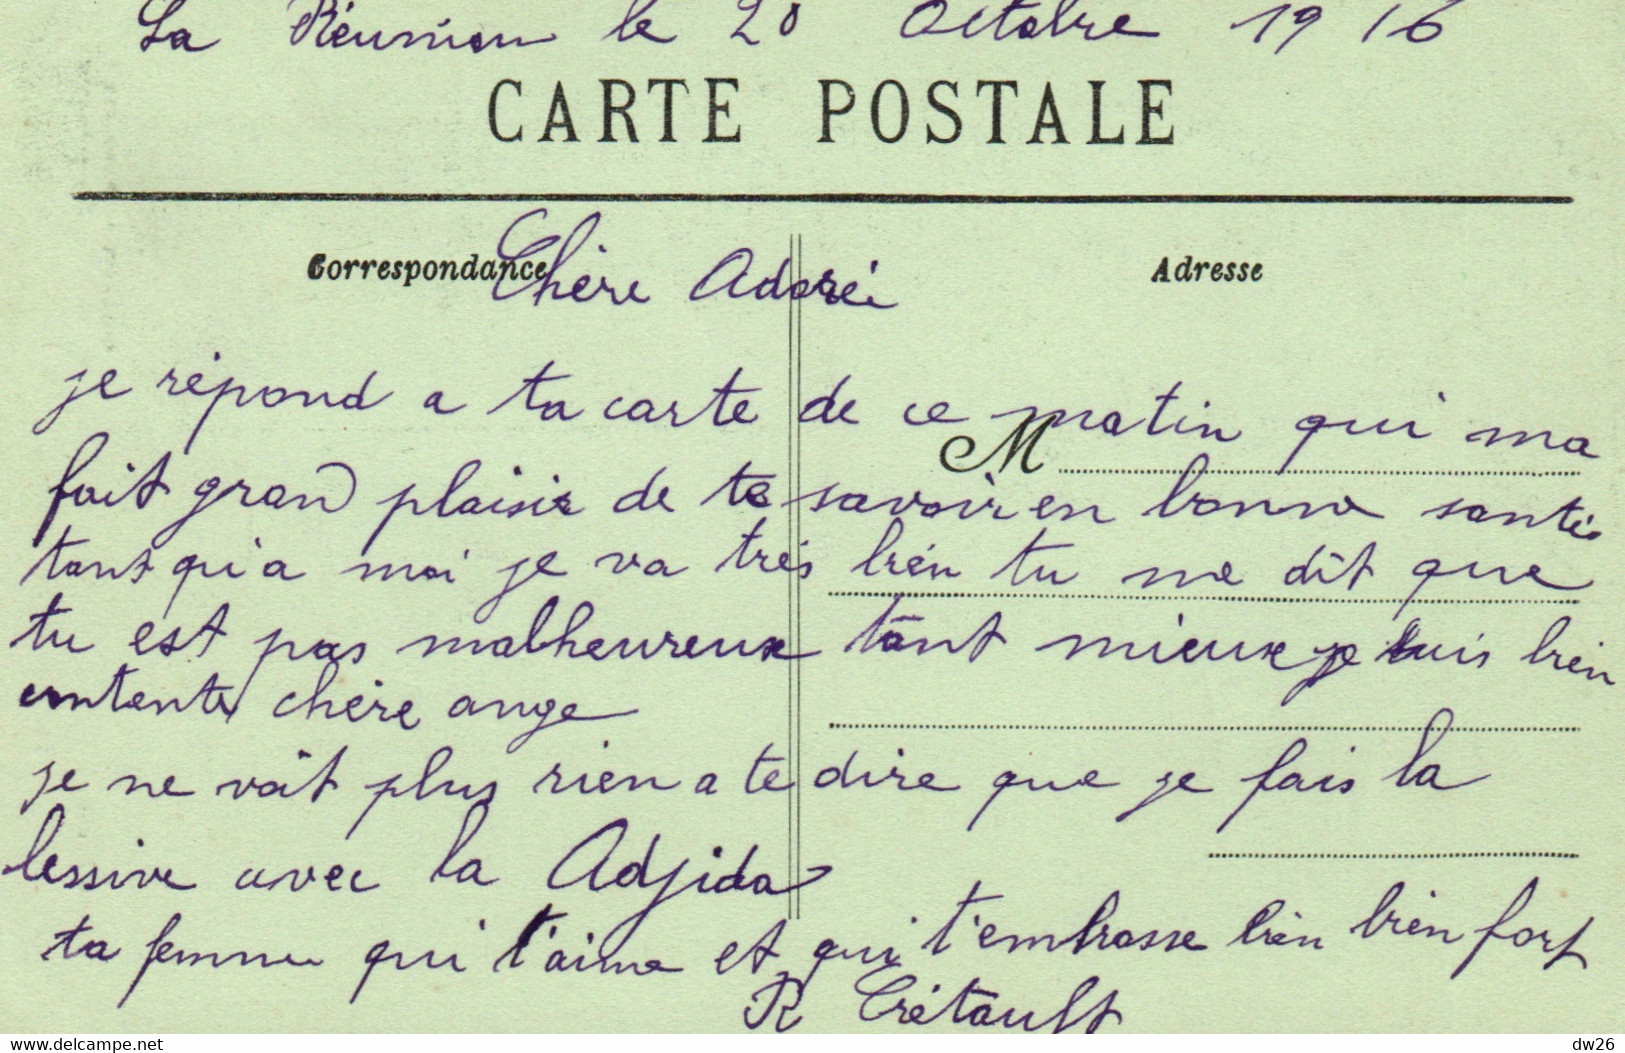 La Réunion le 20 Octobre 1916
CARTE POSTALE
Correspondance
Adresse
Chère Adoréi
je répond a ta carte de ce matin qui ma
M
fait gran plaisir de te savoir en bonne santé
tant qu'a moi je va très bien tu me dit que
tu est pas malheureux tant mieux je suis bien
contente chère ange
je ne voit plus rien a te dire que je fais la
lessive avec la Adjida
ta femme qui t'aime et qui t'embrasse bien bien fort
R Crétault
delcampe.net
dw26